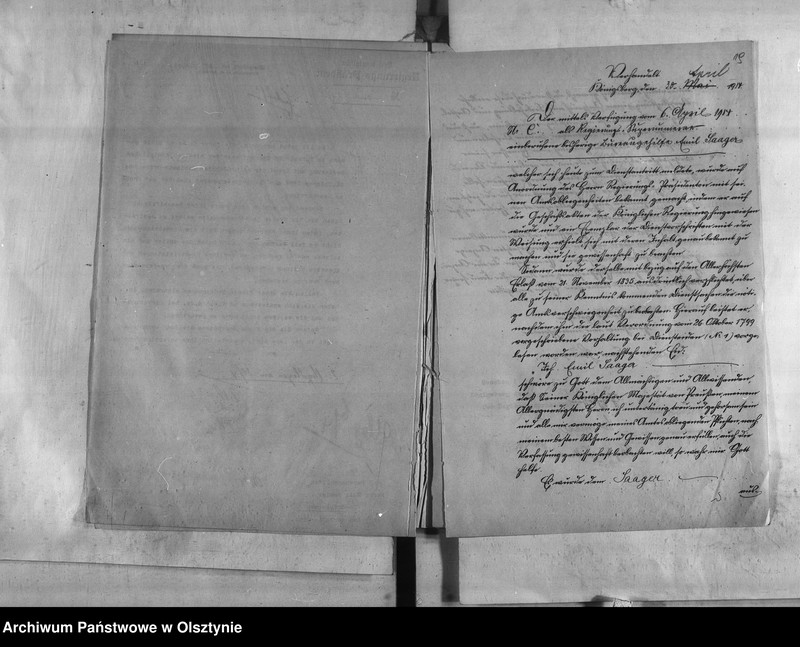 Verhandelt
April
Königsberg, den 30. Mai 1914
Der mittels Verfügung vom 6. April 1914
N. C. als Regierungs-Supernumerar
einberufene bisherige Bureaugehilfe Emil Saager
welcher sich heute zum Dienstantritt meldete, wurde auf
Anordnung des Herrn Regierungs-Präsidenten mit sei-
nen Amtsobliegenheiten bekannt gemacht, indem er auf
die Geschäftsakten der Königlichen Regierung hingewiesen
wurde und ein Exemplar der Dienstvorschriften mit der
Weisung erhielt, sich mit deren Inhalt genau bekannt zu
machen und sie gewissenhaft zu beachten.
Sodann wurde derselbe mit bezug auf den Allerhöchsten
Erlaß vom 21. November 1835 ausdrücklich verpflichtet, über
alle zu seiner Kenntnis kommenden Dienstsachen die nöti-
ge Amtsverschwiegenheit zu beobachten. Hierauf leistet er,
nachdem ihm die laut Verordnung vom 26 Oktober 1799
vorgeschriebene Vorhaltung bei Diensteiden (N. 1) vorge-
lesen worden war, nachstehenden Eid:
Ich Emil Saager
schwöre zu Gott dem Allmächtigen und Allwissenden,
daß Seiner Königlichen Majestät von Preußen, meinem
Allergnädigsten Herrn ich untertänig, treu und gehorsam sein
und alle mir vermöge meines Amtes obliegenden Pflichten nach
meinem besten Wissen und Gewissen genau erfüllen, auch die
Verfassung gewissenhaft beobachten will, so wahr mir Gott
helfe.
Es wurde dem Saager
Archiwum Państwowe w Olsztynie